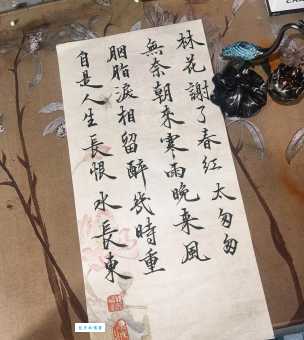 林花謝了春紅太匆匆
無奈朝來寒雨晚來風
胭脂淚相留醉幾時重
自是人生長恨水長東